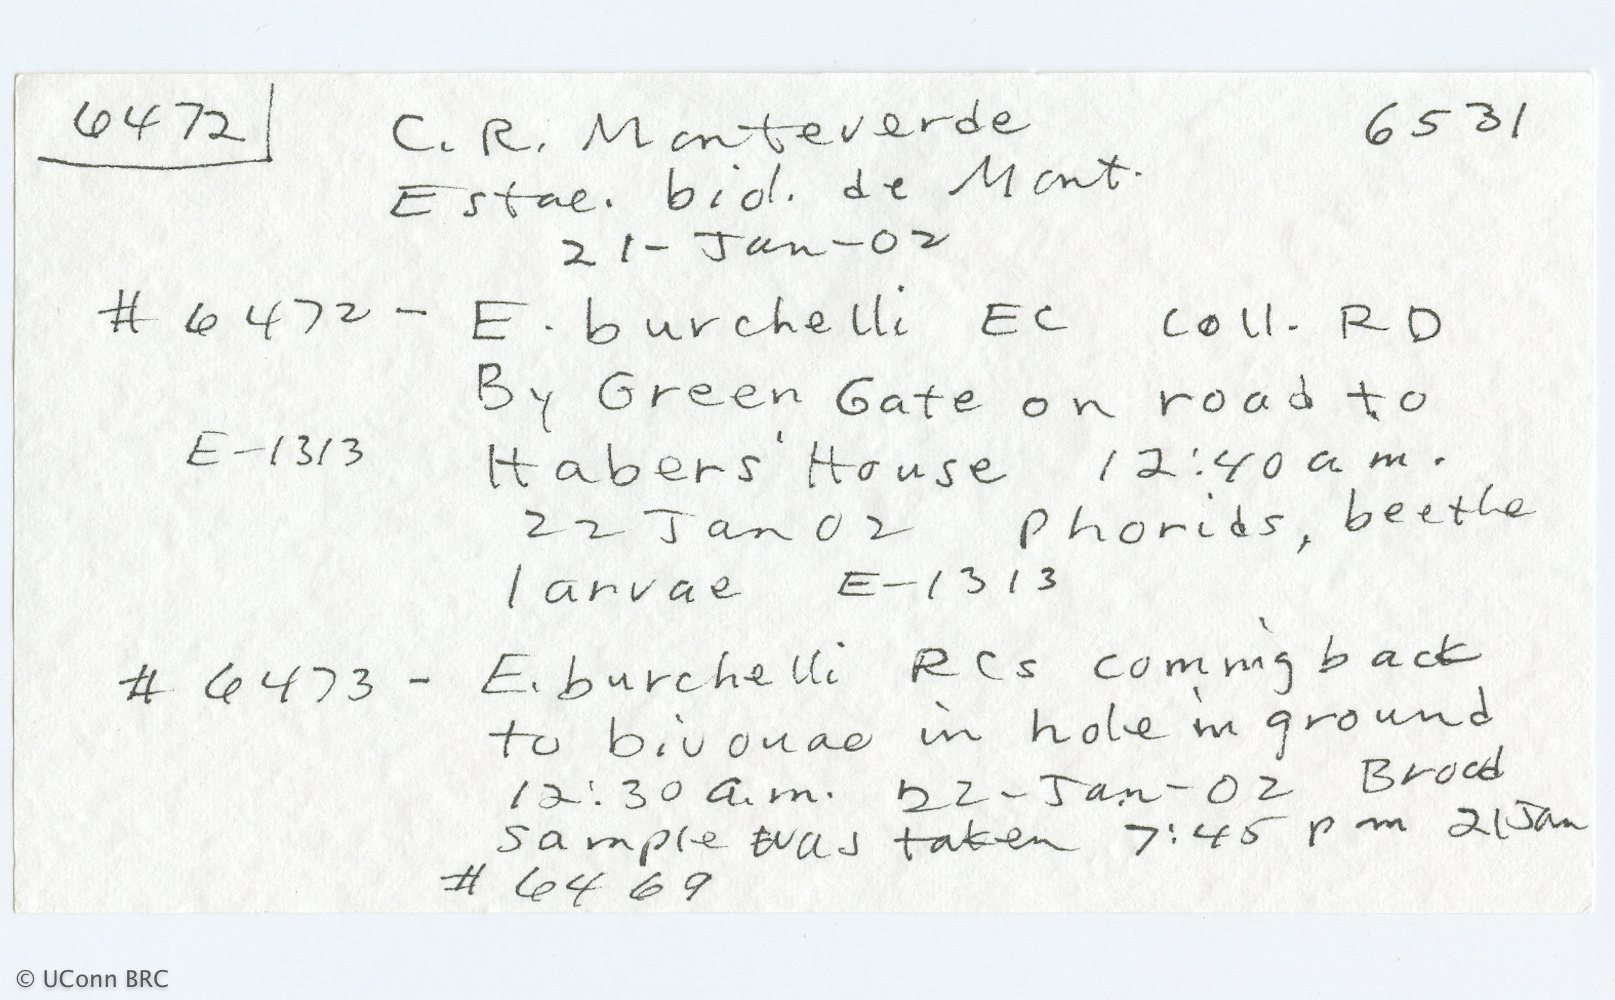 6472
C. R. Monteverde
6531
Estac. biol. de Mont.
21-Jan-02
# 6472 - E. burchelli EC coll. RD
By Green Gate on road to
E-1313
Habers' House 12:40 a m.
22 Jan 02 Phorids, beetle
larvae E-1313
# 6473 - E. burchelli RCs coming back
to bivouac in hole in ground
12:30 a.m. 22-Jan-02 Brood
sample was taken 7:45 pm 21 Jan
# 6469
© UConn BRC